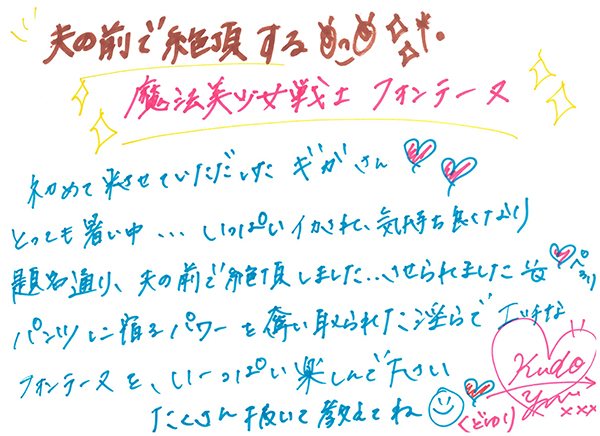 夫の前で絶頂する
魔法美少女戦士 フォンテーヌ
初めて来させていただきました ギガさん
とっても暑い中・・・いっぱいイかされて、気持ち良くなり
題名通り、夫の前で絶頂しました・・させられました
パンツに宿るパワーを奪い取られた淫らでエッチな
フォンテーヌを、いーっぱい楽しんで下さい
たくさん抜いて教えてね
Kudo
xxx